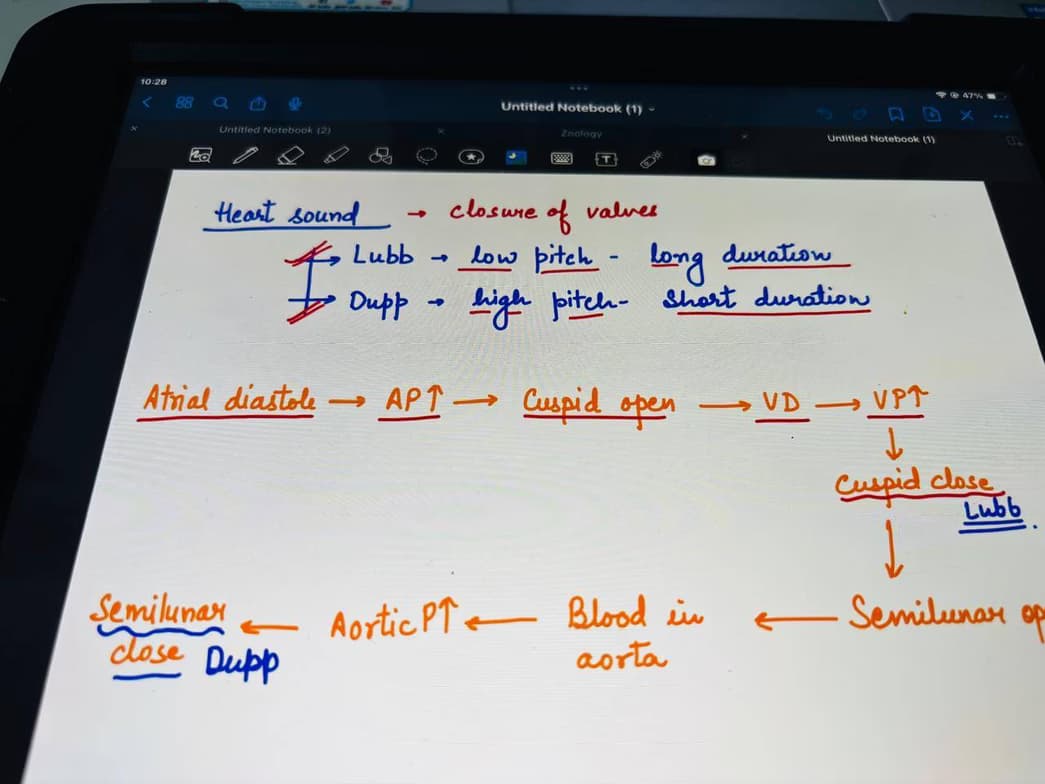 10:28
47%
Untitled Notebook (1)
Untitled Notebook (2)
Zoology
Untitled Notebook (1)
Heart sound → closure of valves
→ Lubb → low pitch - long duration
→ Dupp → high pitch - Short duration
Atrial diastole → AP↑ → Cuspid open → VD → VP↑
↓
Cuspid close
Lubb
↓
Semilunar close Dupp ← Aortic P↑ ← Blood in aorta ← Semilunar op